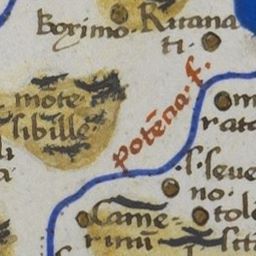 Boximo. Ritana
ti.
mōte.
sibille.
potēna. f.
m
rata
.S. seue
no.
Came=
rinū
tole